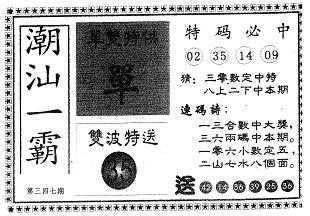 潮汕一霸
第三四七期
單雙特供
單
雙波特送
特码必中
02 35 14 09
猜：三零數定中特
八上二下中本期
連碼詩：
一三合數中大獎，
三六兩碼中本期。
一零六小數定五，
二山七水八個面。
送 42 14 36 39 25 36